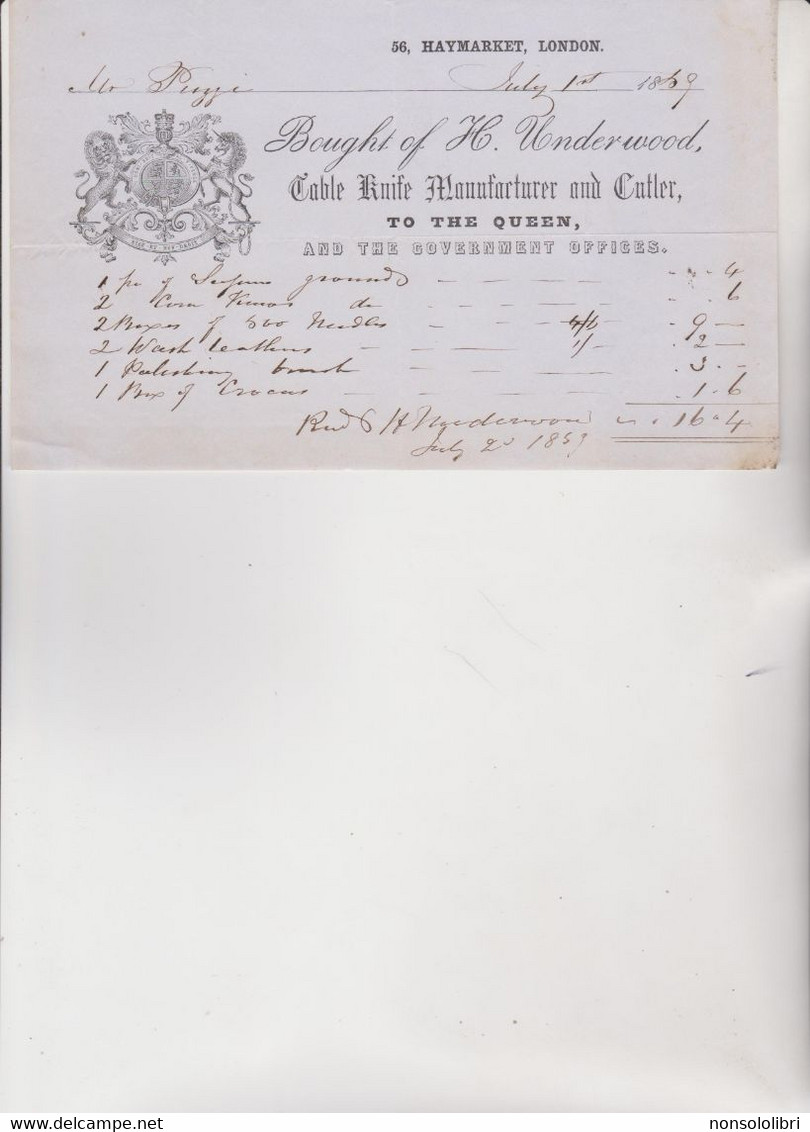 56, HAYMARKET, LONDON.
Mr Puzzi July 1st 1859
Bought of H. Underwood,
Table Knife Manufacturer and Cutler,
TO THE QUEEN,
AND THE GOVERNMENT OFFICES.
1 pr of grounds - - - " " 4
2 Corn Knives do - - - " 6
2 Boxes of 500 Needles - - 4/6 - " 9 -
2 Wash leathers - - - 1/ - " 2 -
1 brush - - - - " 3 " -
1 Box of Crocus - - - " 1 " 6
Recd H Underwood " 16 " 4
July 2d 1859
www.delcampe.net
nonsololibri